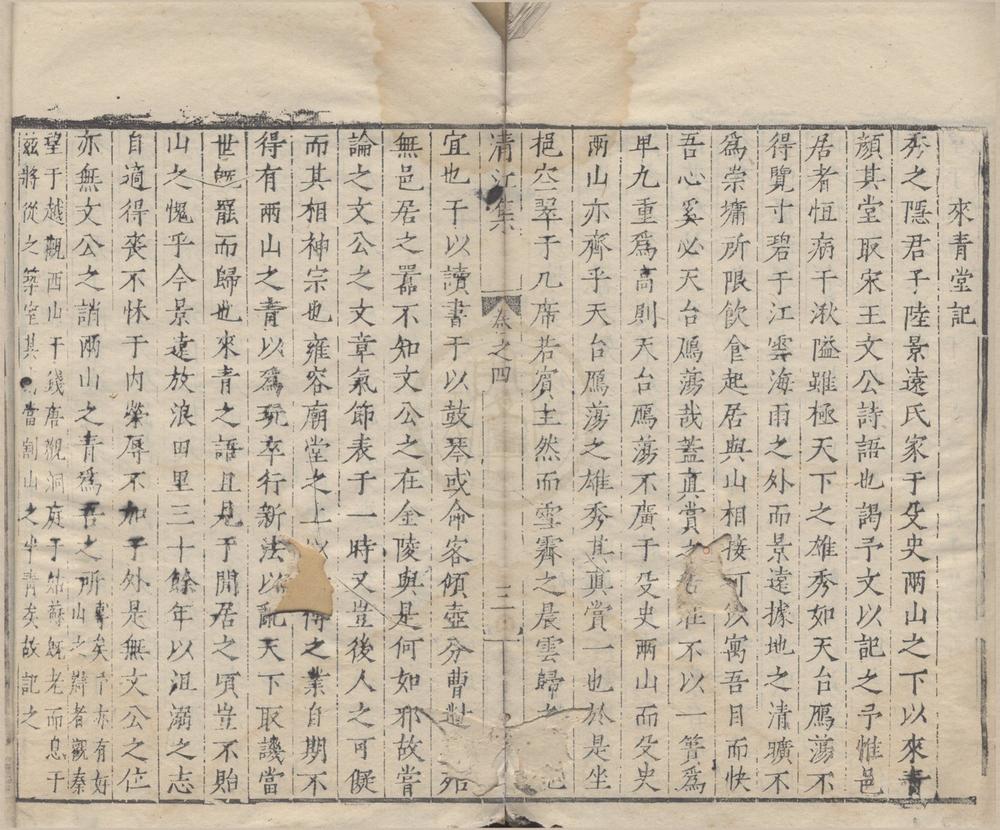 來青堂記
秀之隱君子陸景遠氏家于殳史兩山之下以來青
顏其堂取宋王文公詩語也謁予文以記之予惟邑
居者恒病于湫隘雖極天下之雄秀如天台鴈蕩不
得覽寸碧于江雲海雨之外而景遠據地之清曠不
爲崇墉所限飲食起居與山相接可以寓吾目而快
吾心奚必天台鴈蕩哉蓋真賞之不以一簣爲
卑九重爲高則天台鴈蕩不廣于殳史兩山而殳史
兩山亦齊乎天台鴈蕩之雄秀其真賞一也於是坐
挹空翠于几席若賓主然而雪霽之晨雲歸
清江集
卷之四
宜也于以讀書于以鼓琴或命客傾壺分曹
無邑居之囂不知文公之在金陵與是何如邪故嘗
論之文公之文章氣節表于一時又豈後人之可儗
而其相神宗也雍容廟堂之上以之業自期不
得有兩山之青以爲玩卒行新法以亂天下取譏當
世旣罷而歸也來青之語且見于閒居之頃豈不貽
山之愧乎今景遠放浪田里三十餘年以沮溺之志
自適得喪不怵于內榮辱不加于外是無文公之位
亦無文公之誚兩山之青爲吾之所專矣予亦有好
山之癖者觀秦
望于越觀西山于錢唐觀洞庭于姑蘇旣老而息于
茲將從之築室其當割山之半青矣故記之